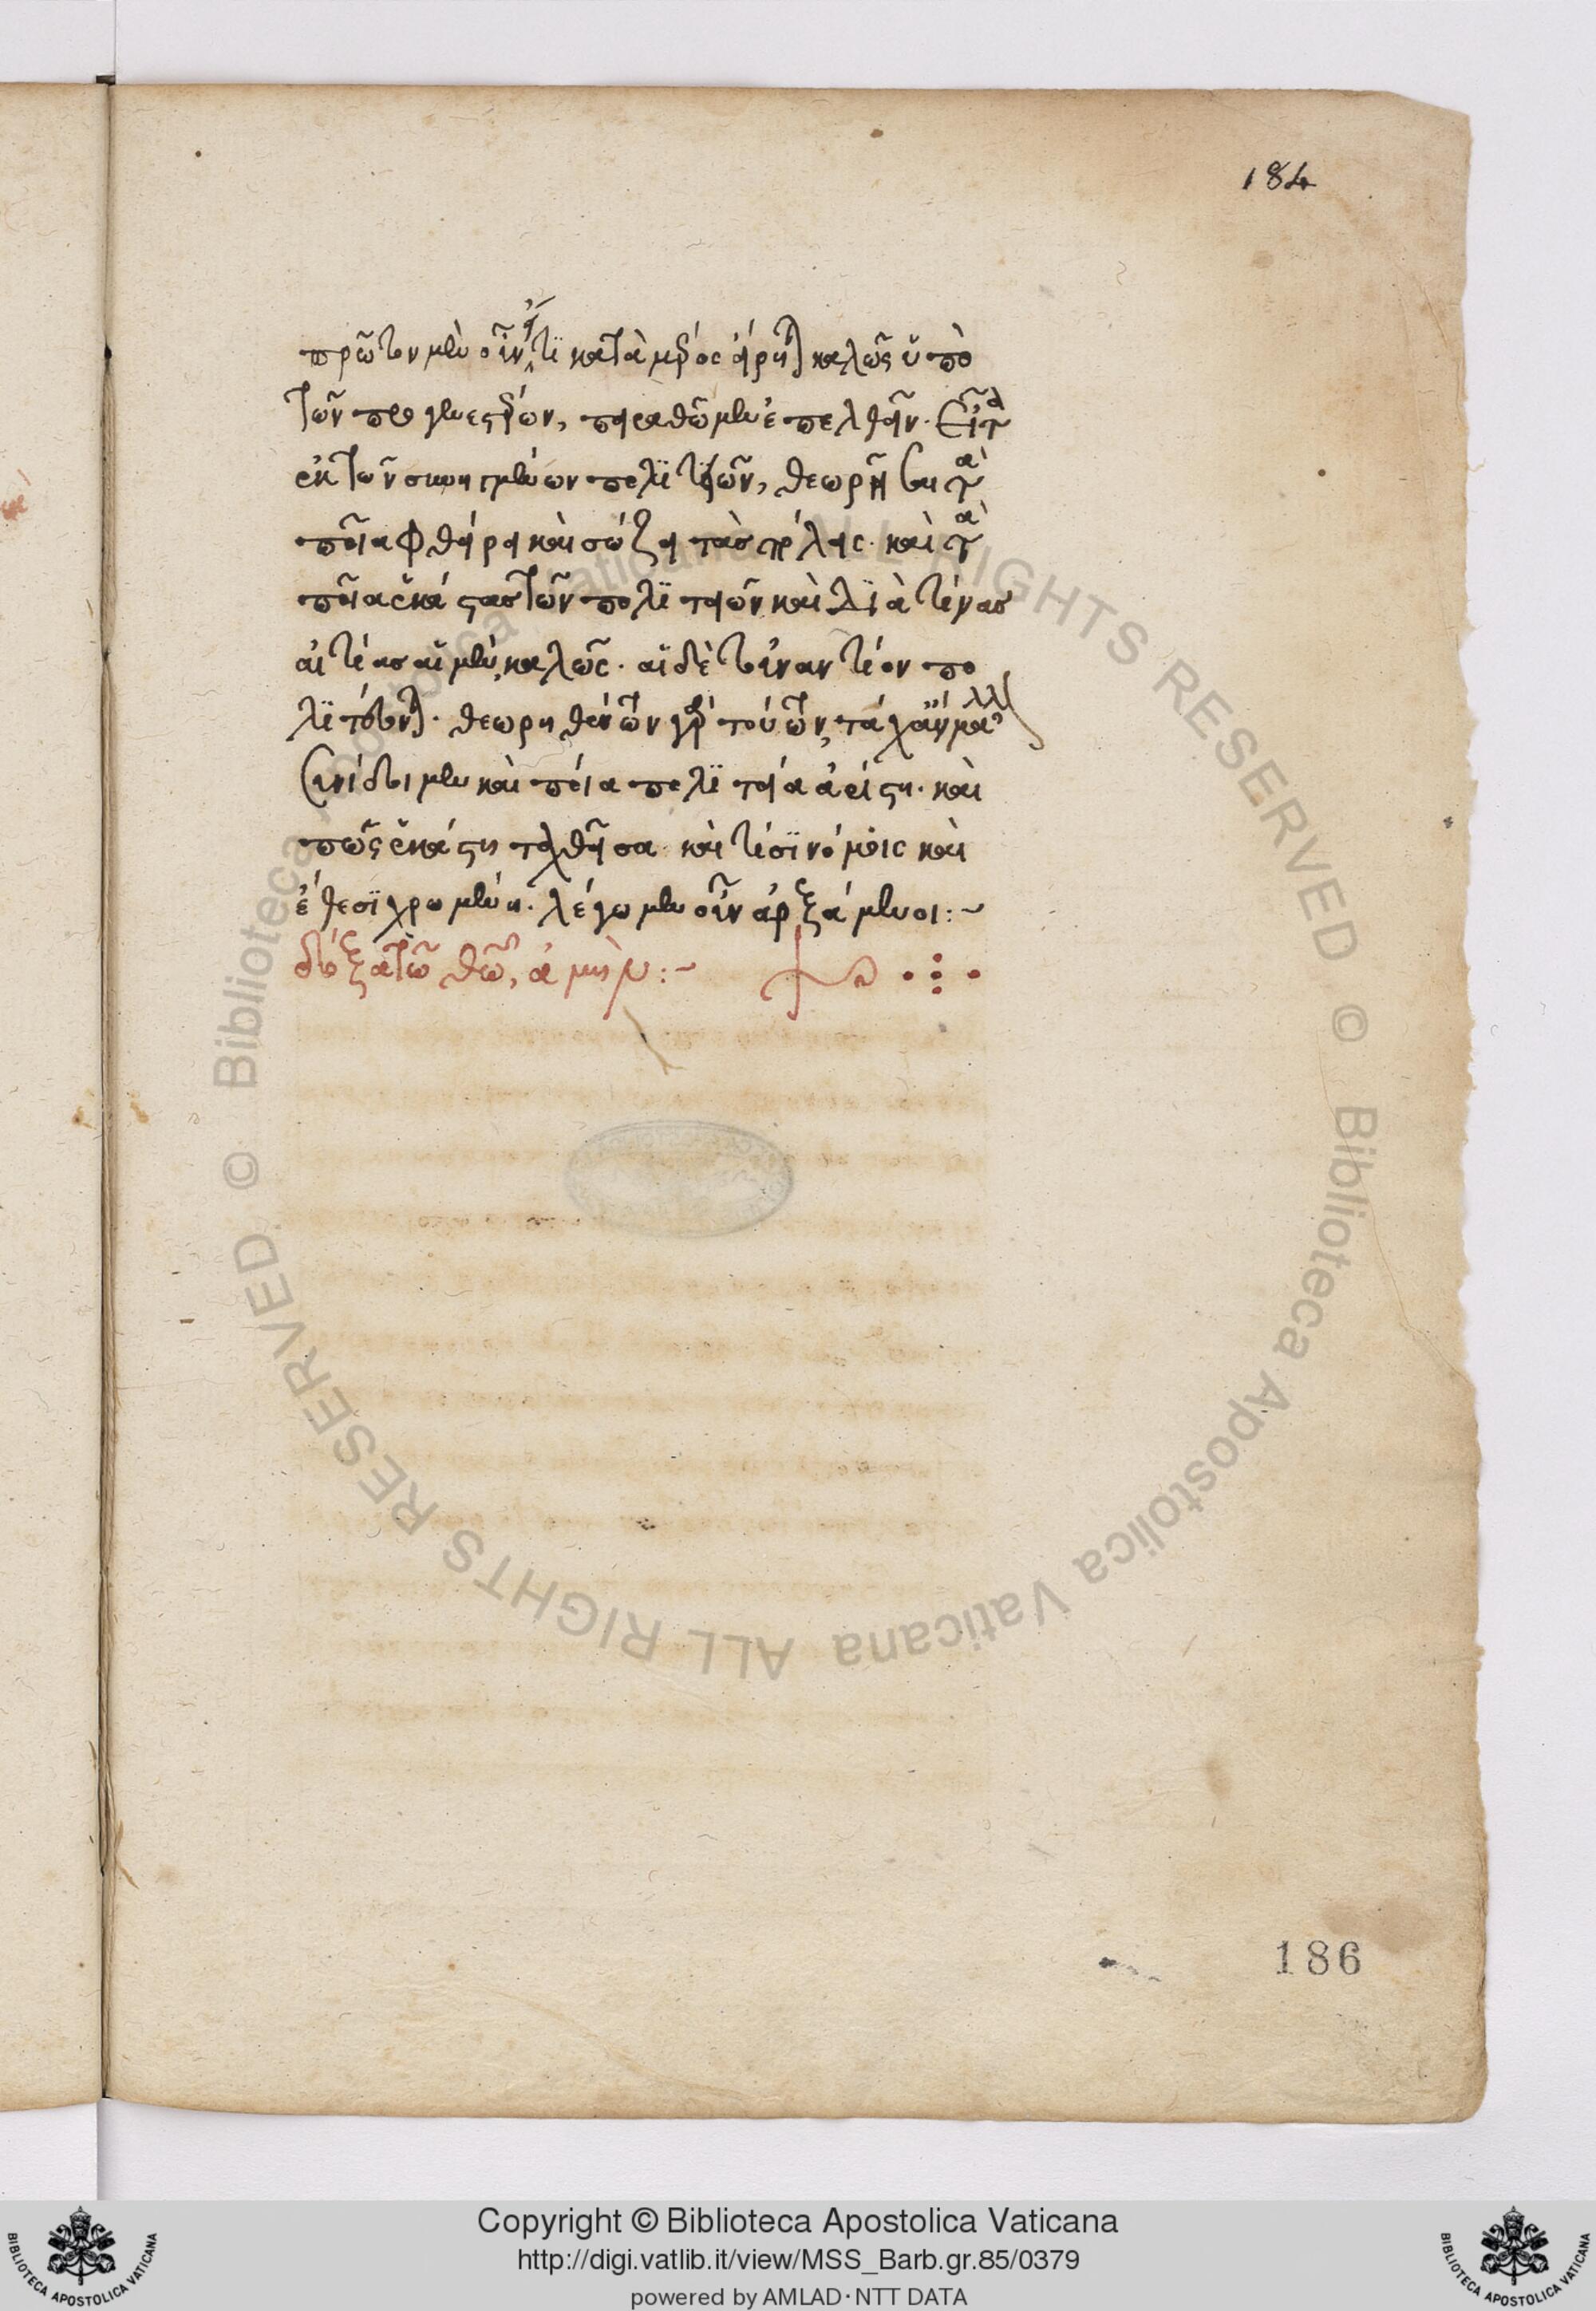 184
πρῶτον μὲν οὖν εἴ τι κατὰ μέρος εἴρηται καλῶς ὑπὸ
τῶν προγενεστέρων, πειραθῶμεν ἐπελθεῖν. Εἶτα
ἐκ τῶν συνηγμένων πολιτειῶν, θεωρῆσαι τὰ
ποῖα φθείρει καὶ σώζει τὰς πόλεις. καὶ τὰ
ποῖα ἑκάστας τῶν πολιτειῶν καὶ διὰ τίνας
αἰτίας αἱ μὲν, καλῶς. αἱ δὲ τοὐναντίον πο
λιτεύονται. θεωρηθέντων γὰρ τούτων, τάχ ἂν μᾶλλον
συνίδοιμεν καὶ ποία πολιτεία ἀρίστη. καὶ
πῶς ἑκάστη ταχθεῖσα καὶ τίσι νόμοις καὶ
ἔθεσι χρωμένη. λέγωμεν οὖν ἀρξάμενοι:~
δόξα τῶ θεῶ, ἀμήν:~
186
Copyright © Biblioteca Apostolica Vaticana
http://digi.vatlib.it/view/MSS_Barb.gr.85/0379
powered by AMLAD·NTT DATA
BIBLIOTECA APOSTOLICA VATICANA
BIBLIOTECA APOSTOLICA VATICANA
© Biblioteca Apostolica Vaticana ALL RIGHTS RESERVED
© Biblioteca Apostolica Vaticana ALL RIGHTS RESERVED